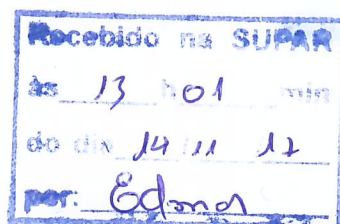 Recebido na SUPAR
às 13 h 01 min
do dia 14 11 17
por: Edmar